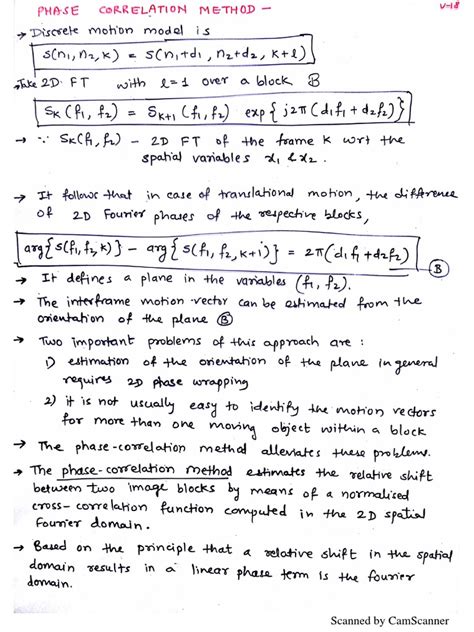 PHASE CORRELATION METHOD -
V-18
→ Discrete motion model is
s(n₁,n₂,k) = s(n₁+d₁, n₂+d₂, k+l)
→ Take 2D FT with l=1 over a block B
Sₖ(f₁,f₂) = Sₖ₊₁(f₁,f₂) exp{j2π(d₁f₁+d₂f₂)}
→ ∵ Sₖ(f₁,f₂) – 2D FT of the frame k wrt the
spatial variables x₁ & x₂.
→ It follows that in case of translational motion, the difference
of 2D Fourier phases of the respective blocks,
arg{S(f₁,f₂,k)} – arg{S(f₁,f₂,k+1)} = 2π(d₁f₁+d₂f₂)
B
→ It defines a plane in the variables (f₁,f₂).
→ The interframe motion-vector can be estimated from the
orientation of the plane B
→ Two important problems of this approach are :
1) estimation of the orientation of the plane in general
requires 2D phase wrapping
2) it is not usually easy to identify the motion vectors
for more than one moving object within a block
→ The phase-correlation method alleviates these problems.
→ The phase-correlation method estimates the relative shift
between two image blocks by means of a normalised
cross-correlation function computed in the 2D spatial
Fourier domain.
→ Based on the principle that a relative shift in the spatial
domain results in a linear phase term is the fourier
domain.
Scanned by CamScanner